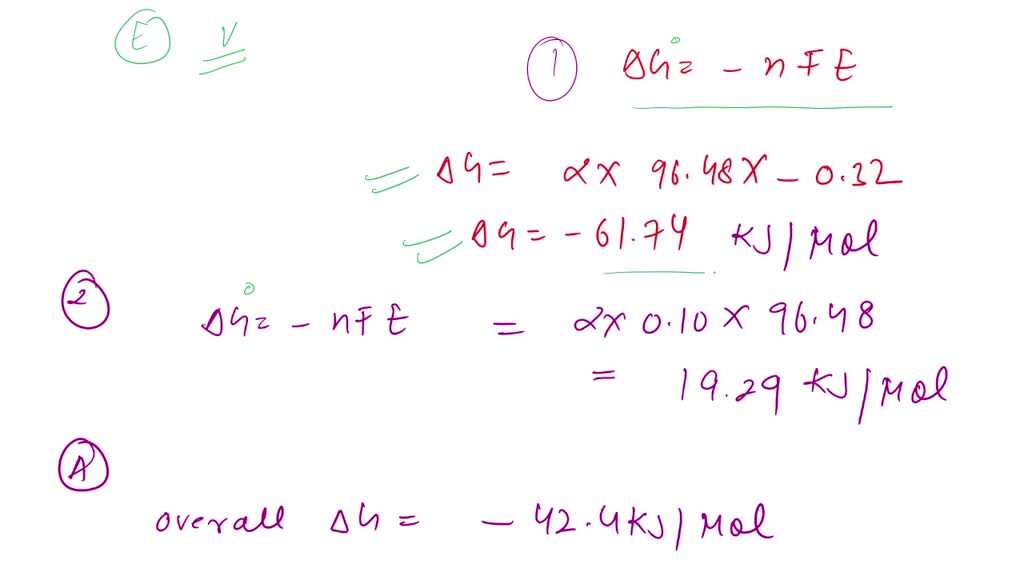 E V
① ΔG° = - nFE
ΔG = 2 x 96.48 x - 0.32
ΔG = - 61.74 KJ/Mol
② ΔG° = - nFE = 2 x 0.10 x 96.48
= 19.29 KJ/Mol
A
overall ΔG = - 42.4 KJ/Mol